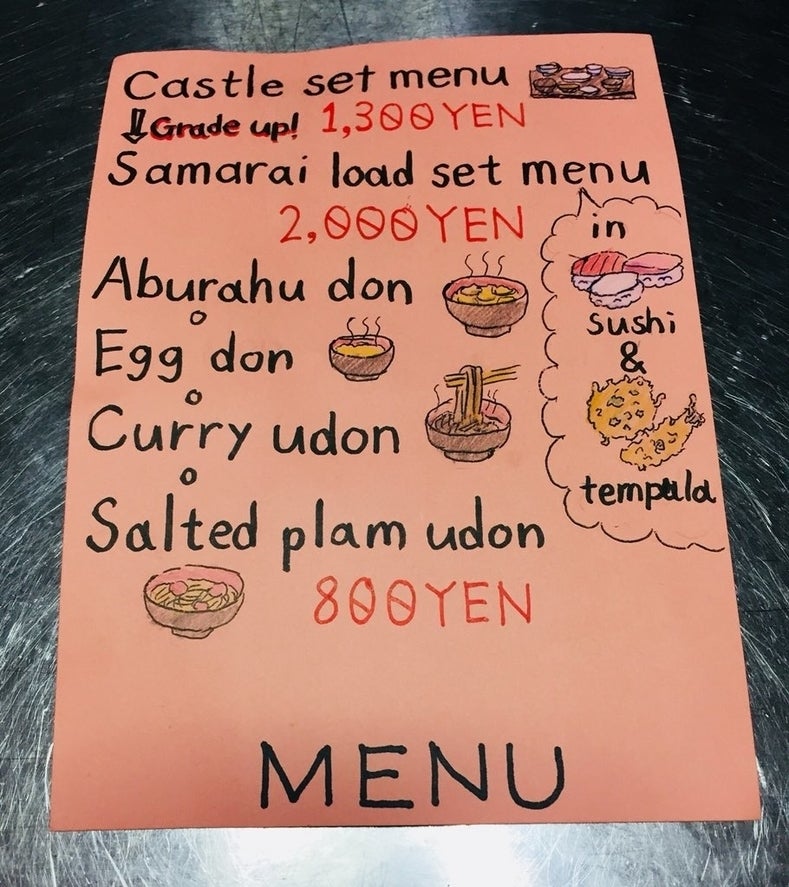 Castle set menu
⇓Grade up! 1,300YEN
Samarai load set menu
2,000YEN
in
sushi
&
tempula
Aburahu don
Egg don
Curry udon
Salted plam udon
800YEN
MENU